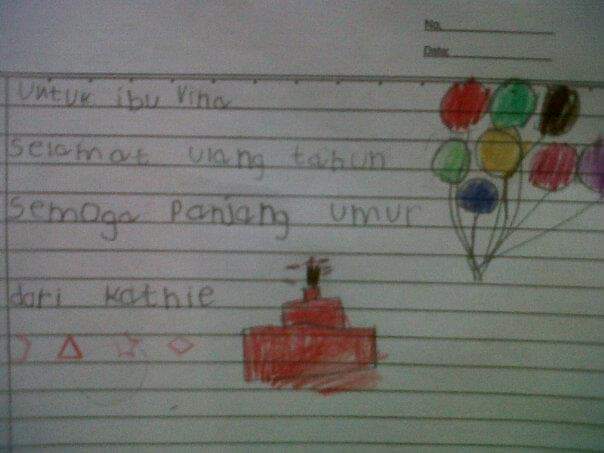 No.
Date:
untuk ibu Vina
selamat ulang tahun
semoga panjang umur
dari kathie